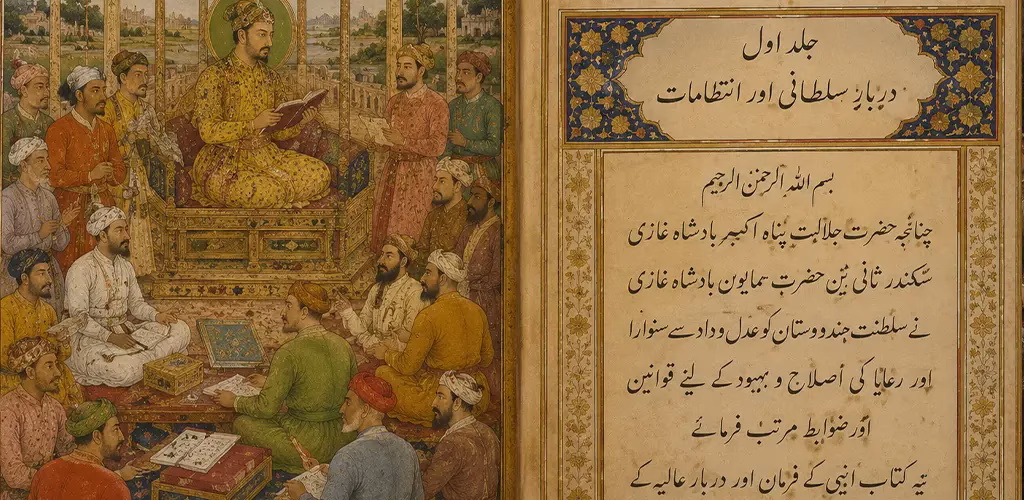 جلد اول
دربارِ سلطانی اور انتظامات
بسم الله الرحمن الرحیم
چنانچہ حضرت جلالت پناہ اکبر بادشاہ غازی
سکندر ثانی بن حضرت ہمایون بادشاہ غازی
نے سلطنت ہندوستان کو عدل و داد سے سنوارا
اور رعایا کی اصلاح و بہبود کے لئے قوانین
اور ضوابط مرتب فرمائے
یہ کتاب انہی کے فرمان اور دربار عالیہ کے